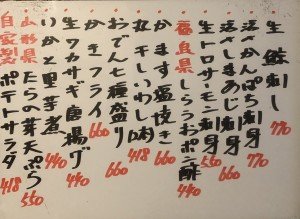 生鯨刺し 770
活〆かんぱち刺身 770
活〆しまあじ刺身 660
生トロサーモン刺身 550
福島県しらうおポン酢 440
かます塩焼き 660
丸干しいわし 418
おでん七種盛り 660
かきフライ 660
生ワカサギ唐揚げ 440
いかと里芋煮 440
山形県たらの芽天ぷら 550
自家製ポテトサラダ 418